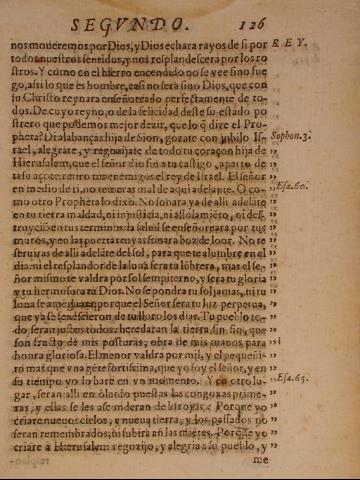 SEGVNDO. 126
nos mouieremos por Dios, y Dios echara rayos de si por REY.
todos nuestros sentidos, y nos resplandescera por los ro
stros. Y como en el hierro encendido no se vee sino fue
go, assi lo que es hombre, casi no sera sino Dios, que con
su Christo reynara enseñoreado perfectamente de to-
dos. De cuyo reyno, o de la felicidad deste su estado po
strero que podemos mejor dezir, que lo q̃ dize el Pro-
pheta? Di alabanças hija de Sion, gozate con jubilo Is- Sophon. 3.
rael, alegrate, y regozijate de todo tu coraçon hija de
Hierusalem, que el señor dio fin a tu castigo, aparto de
ti su açote, retiro tus enemigos el rey de Israel. El señor
en medio de ti, no temeras mal de aqui adelante. O co- Esa. 60.
mo otro Propheta lo dixo. No sonara ya de alli adelãte
en tu tierra maldad, ni injusticia, ni assolamiẽto, ni des-
truyciõ en tus terminos: la salud se enseñoreara por tus
muros, y en las puertas tuyas sonara boz de loor. No te
seruiras de alli adelãte del sol, para que te alumbre en el
dia: ni el resplandor de la luna sera tu lũbrera, mas el se-
ñor mismo te valdra por sol sempiterno, y sera tu gloria
y tu hermosura tu Dios. No se pondra tu sol jamas, ni tu
luna se amẽguara: porque el Señor sera tu luz perpetua,
que ya se fenescieron de tu lloro los dias. Tu pueblo to-
do seran justos todos: heredaran la tierra sin fin, que
son fructo de mis posturas, obra de mis manos para
honra gloriosa. El menor valdra por mil, y el pequeñi-
to mas que vna gẽte fortissima, que yo soy el señor, y en
su tiempo yo lo hare en vn momento. Y en otro lu- Esa. 65.
gar, seran alli en oluido puestas las congoxas prime-
ras, y ellas se les asconderan de los ojos. Porque yo
criare nueuos cielos, y nueua tierra, y los passados no
seran remembrados, ni subiran a las mientes. Porque yo
criare a Hierusalem regozijo, y alegria a su pueblo, y
me